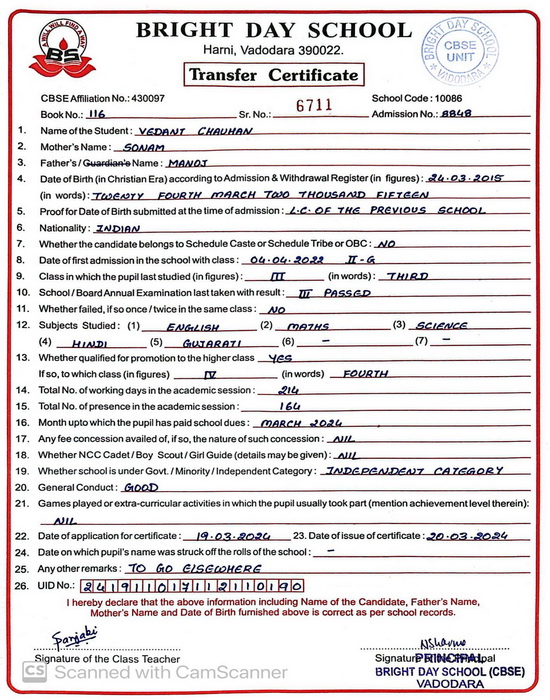 A WILL WILL FIND A WAY
BS
BRIGHT DAY SCHOOL
Harni, Vadodara 390022.
BRIGHT DAY SCHOOL
CBSE
UNIT
VADODARA
Transfer Certificate
CBSE Affiliation No.: 430097 School Code : 10086
Book No.: 116 Sr. No.: 6711 Admission No.: 8848
1. Name of the Student : VEDANT CHAUHAN
2. Mother's Name : SONAM
3. Father's / Guardian's Name : MANOJ
4. Date of Birth (in Christian Era) according to Admission & Withdrawal Register (in figures) : 24.03.2015
(in words) : TWENTY FOURTH MARCH TWO THOUSAND FIFTEEN
5. Proof for Date of Birth submitted at the time of admission : L.C. OF THE PREVIOUS SCHOOL
6. Nationality : INDIAN
7. Whether the candidate belongs to Schedule Caste or Schedule Tribe or OBC : NO
8. Date of first admission in the school with class : 04.04.2022 II-G
9. Class in which the pupil last studied (in figures) : III (in words) : THIRD
10. School / Board Annual Examination last taken with result : III PASSED
11. Whether failed, if so once / twice in the same class : NO
12. Subjects Studied : (1) ENGLISH (2) MATHS (3) SCIENCE
(4) HINDI (5) GUJARATI (6) - (7) -
13. Whether qualified for promotion to the higher class YES
If so, to which class (in figures) IV (in words) FOURTH
14. Total No. of working days in the academic session : 214
15. Total No. of presence in the academic session : 164
16. Month upto which the pupil has paid school dues : MARCH 2024
17. Any fee concession availed of, if so, the nature of such concession : NIL
18. Whether NCC Cadet / Boy Scout / Girl Guide (details may be given) : NIL
19. Whether school is under Govt. / Minority / Independent Category : INDEPENDENT CATEGORY
20. General Conduct : GOOD
21. Games played or extra-curricular activities in which the pupil usually took part (mention achievement level therein):
NIL
22. Date of application for certificate : 19.03.2024 23. Date of issue of certificate : 20.03.2024
24. Date on which pupil's name was struck off the rolls of the school : -
25. Any other remarks : TO GO ELSEWHERE
26. UID No.: 241911017112110190
I hereby declare that the above information including Name of the Candidate, Father's Name,
Mother's Name and Date of Birth furnished above is correct as per school records.
Signature of the Class Teacher Signature of the Principal
PRINCIPAL
CS Scanned with CamScanner
BRIGHT DAY SCHOOL (CBSE)
VADODARA